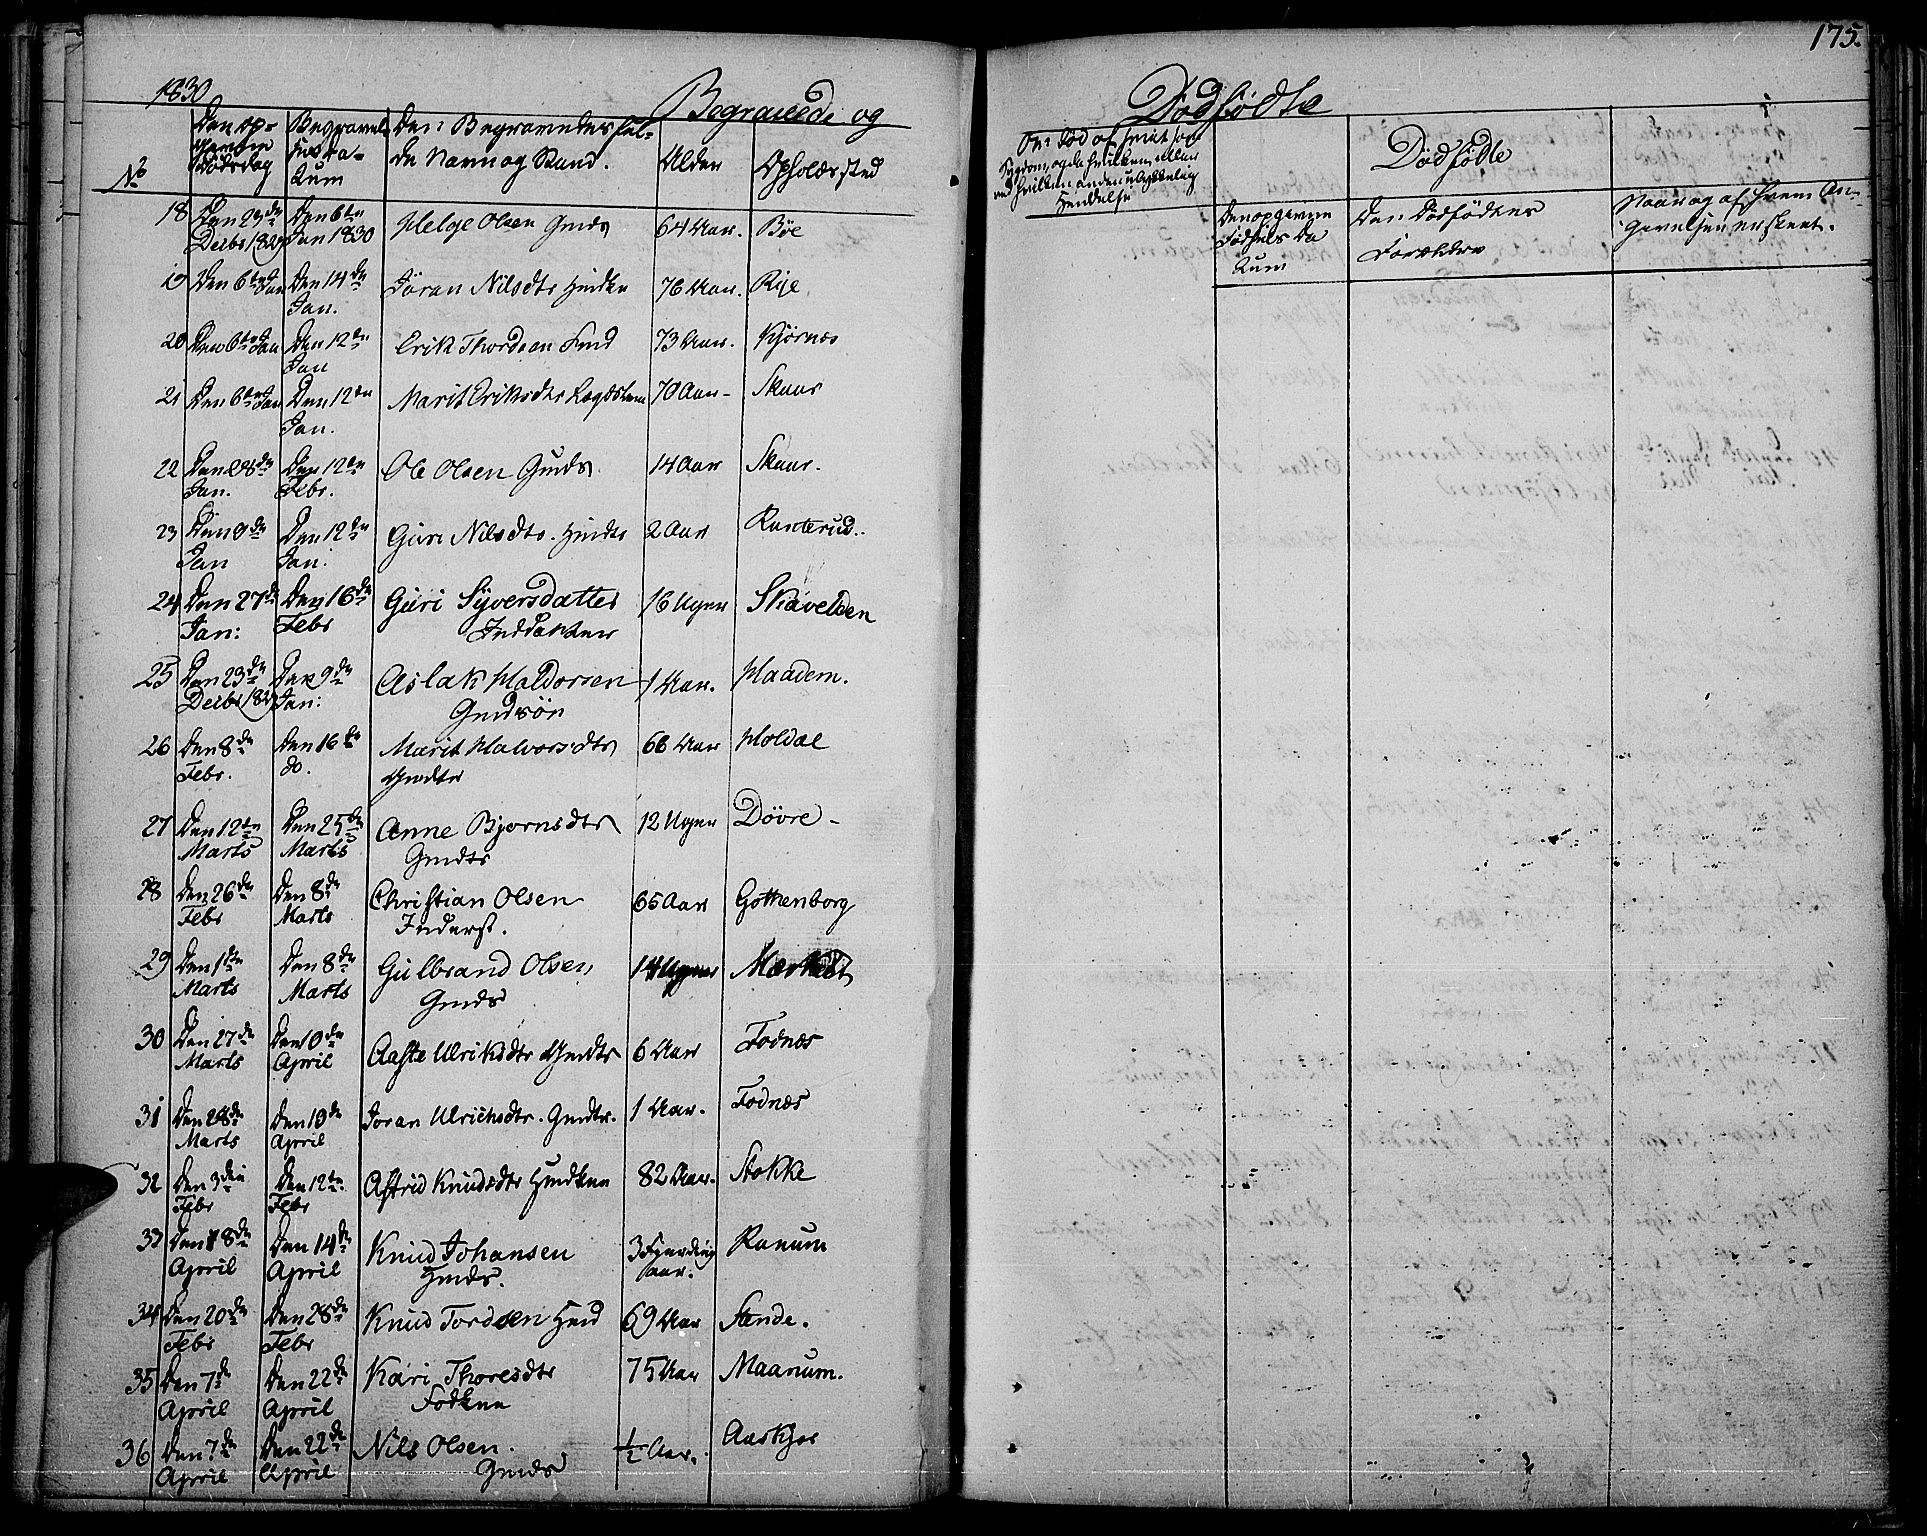 175.
1830
Begravede og Dødfødte
No
Den op-
givne
Dødsdag
Begravel-
ses Da-
tum
Den Begravedes ful-
de Navn og Stand.
Alder
Opholdssted
Dødfødte
Den opgivne
Fødsels Da
tum
Den Dødfødtes
Forældre
Naar og af hvem An-
givelsen er skeet.
18 Den 23de Den 6te Helge Olsen Gmds 64 Aar. Bøe
Decbr 1829 Jan 1830
19 Den 6te Jan Den 14de Jøran Nilsdtr 76 Aar. Rije
Jan.
20 Den 6te Jan Den 12te Erik Thordsen 73 Aar. Kjørnæs
Jan
21 Den 6te Jan Den 12te Marit Eriksdtr Lægdslem 70 Aar Skaar
Jan.
22 Den 28de Den 12te Ole Olsen Gmds. 14 Aar Skaar.
Jan. Febr.
23 Den 9de Den 12te Guri Nilsdtr. 2 Aar Ranterud.
Jan Jan.
24 Den 27de Den 16de Guri Syversdatter 16 Uger Skavelden
Jan: Febr
25 Den 23de Den 9de Aslak Haldorsen 1 Aar. Haadem.
Decbr 1829 Jan: Gmdsøn
26 Den 8de Den 16de Marit Halvorsdtr 66 Aar Holdal
Febr. do. Gmdtr
27 Den 12te Den 25de Anne Bjørnsdtr 12 Uger Døvre
Marts Marts Gmdtr
28 Den 26de Den 8de Christian Olsen 65 Aar Gothenborg
Febr Marts Inderst.
29 Den 1ste Den 8de Gulbrand Olsen 14 Uger
Marts Marts Gmds
30 Den 27de Den 10de Aaste Ulriksdtr Gmdtr 6 Aar Fodnæs
Marts April
31 Den 28de Den 10de Joran Ulrichsdtr. Gmdtr. 1 Aar. Fodnæs
Marts April
32 Den 3die Den 12te Astrid Knudsdtr 82 Aar. Stokke
Febr Febr
33 Den 8de Den 14de Knud Johansen 3 Fjerding Ranum
April April aar.
34 Den 20de Den 28de Knud Tordsen 69 Aar Stende.
Febr Febr
35 Den 7de Den 22de Kari Thoresdtr 75 Aar Maanum.
April April
36 Den 7de Den 22de Nils Olsen. ½ Aar. Aaskjer
April April Gmds